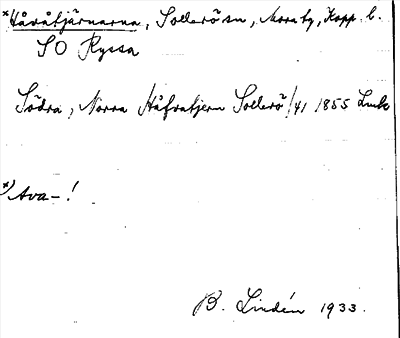 *Håvåtjärnarna, Sollerö sn, Mora tg, Kopp. l.
SO Ryssa
Södra, Norra Håfvatjern Sollerö 1/41 1855 Lmk
*) Ava-!
B. Lindén 1933.